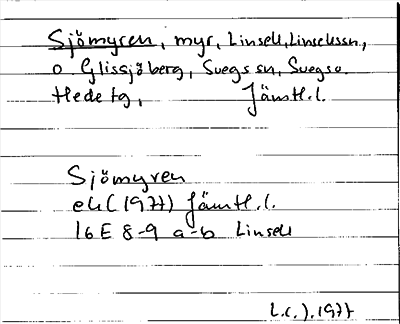 Sjömyren, myr, Linsell, Linsellssn,
o. Glissjöberg, Svegs sn, Svegs o.
Hede tg, Jämtl.l.
Sjömyren
ek (1977) Jämtl.l.
16E 8-9 a-b Linsell
L.C.J. 1977